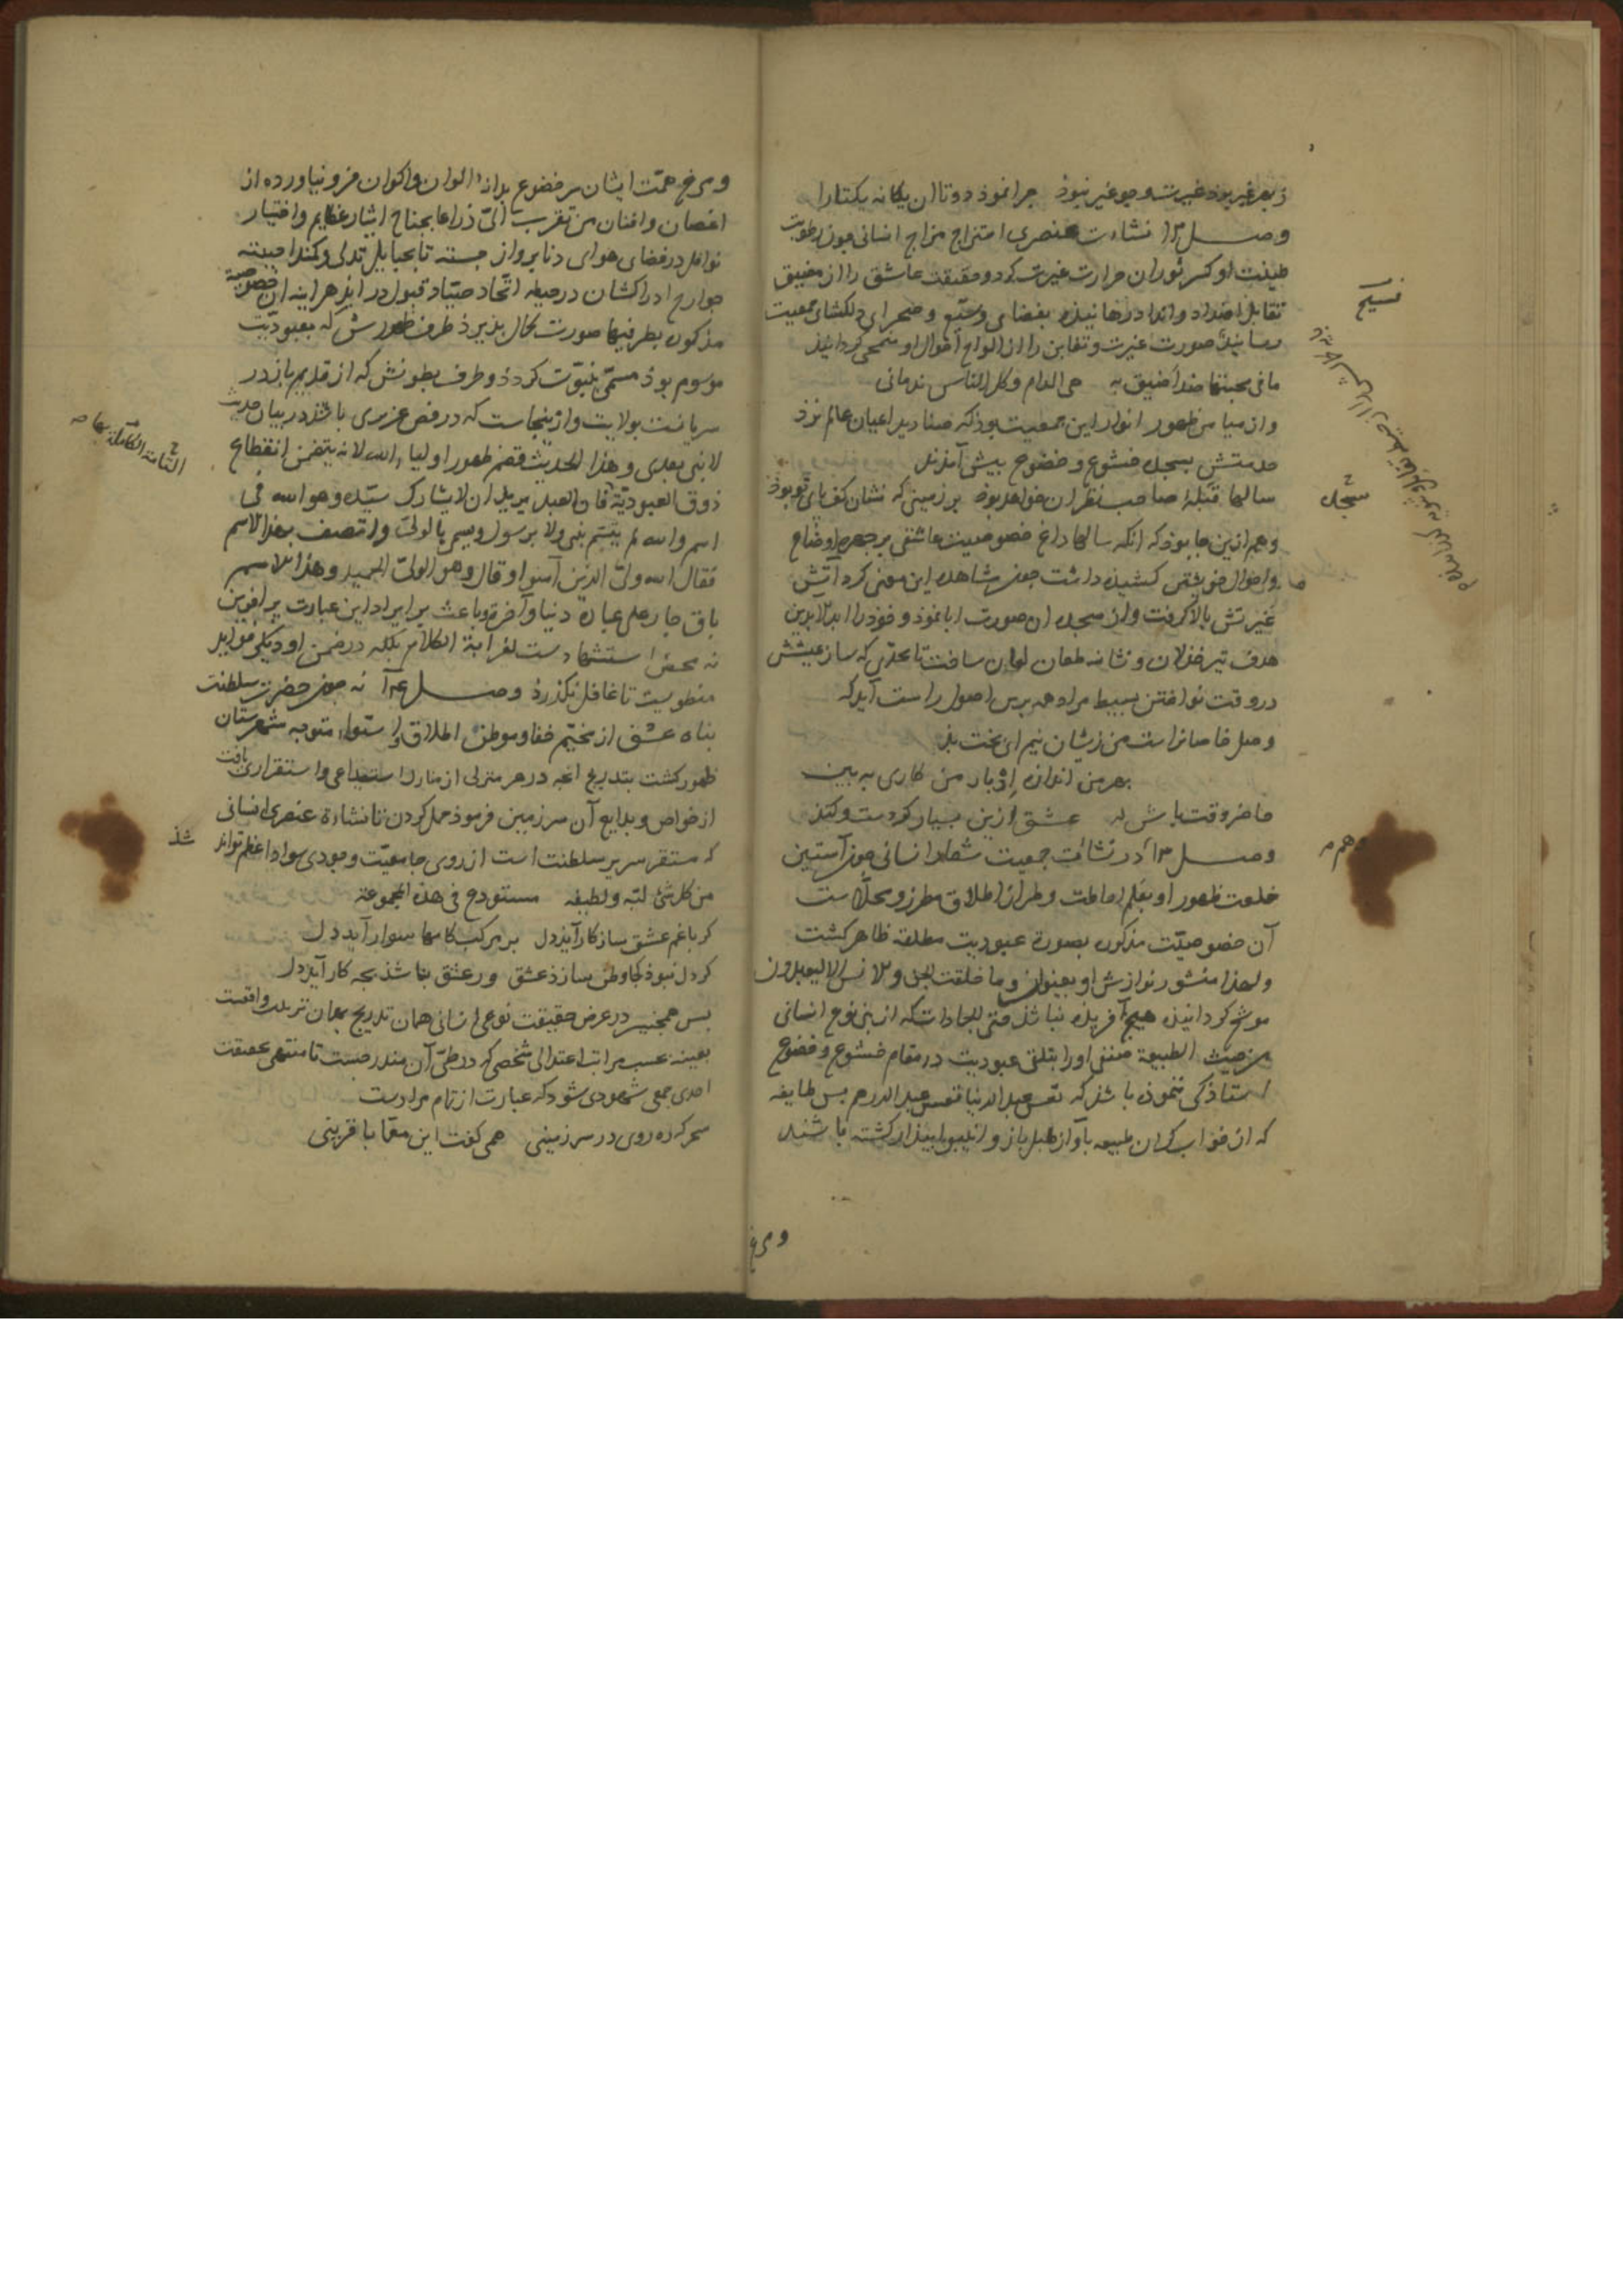 ز بهر غیر بوذ غیرت و جو غیر نبوذ چرا نموذ دوتا ان یکانه یکتا را
وصــل ۱۲ نشاءت عنصری امتزاج مزاج انسانی چون رطوبت
طینت او کسر ثوران حرارت غیرت کرد و حقیقت عاشق را از مضیق
تقابل اضداد و انداد رهانیذه بفضای وسیع و صحرای دلکشای جمعیت
رسانیذ صورت غیرت و تقابل را از الواح احوال او منمحی کردانیذ
ما فی محبتها ضد اضیق به هی المدام و کل الناس ندمانی
و از میامن ظهور انوار این جمعیت بوذ که صنادید اعیان عالم نزد
خدمتش بسجده خشوع و خضوع پیش آمذند
سالها قبله صاحب نظران خواهد بوذ بر زمینی که نشان کف پای تو بوذ
و هم ازین جا بوذ که انکه سالها داغ خصوصیت عاشقی بر چهره اوضاع
و احوال خویشتن کشیذه داشت چون مشاهده این معنی کرد آتش
غیرتش بالا کرفت و از سجده ان صورت ابا نموذ و خوذ را ابد الابدین
هدف تیر خذلان و نشانه طعان لعان ساخت تا بحدی که ساز عیشش
در وقت نواختن بسیط مراد همه برین اصول راست آید که
وصل خاصانراست من زیشان نیم ای بخت بد
بهر من اندازه ادبار من کاری ببین
حاضر وقت باش که عشق ازین بسیار کردست و کند
وصــل ۱۳ در نشأت جمعیت شعار انسانی چون آستین
خلعت ظهور او بعلم احاطت و طراز اطلاق مطرز و محلاست
آن خصوصیت مذکوره بصورة عبودیت مطلقه ظاهر کشت
و لهذا منشور نوازش او بعنوان و ما خلقت الجن و الانس الا لیعبدون
موشح کردانیذ هیچ آفریذه نباشذ حتی الجمادات که از بنی نوع انسانی
من حیث الطبیعة صنفی او را بتلقی عبودیت در مقام خشوع و خضوع
استاذکی ننموذه باشذ که تعس عبد الدنیا تعس عبد الدرهم پس طایفه
که از خواب کران طبیعه بآواز طبل باز و انیبوا بیذار کشته باشند
و مرغ
فسیح
سجده
و هم
و مرغ همت ایشان سر خضوع بدانه الوان و اکوان فرو نیاورده از
اغصان و افنان من تقرب الی ذراعا بجناح ایثار عظایم و اختیار
نوافل در فضای هوای دنا پرواز جسته تا بحبایل تدلی و کمند احببته
جوارح ادراکشان در حیطه اتحاد صیاد قبول در ایذ هر اینه ان خصوصیة
مذکوره بطرفیها صورت کمال پذیرذ طرف ظهورش که بعبودیت
موسوم بوذ مسمی بنبوت کردد و طرف بطونش که از قدیم باز در
سریانست بولایت و ازینجاست که در فص عزیری باشذ در بیان حدیث
لا نبی بعدی و هذا الحدیث قصم ظهور اولیاء الله لانه یتضمن انقطاع
ذوق العبودیة فان العبد یرید ان لا یشارک سیده و هو الله فی
اسم و الله لم یتسم بنبی ولا برسول و یسمی بالولی و اتصف بهذا الاسم
فقال الله ولی الذین آمنوا و قال و هو الولی الحمید و هذا الاسم
باق جار علی عباده دنیا و آخرة و باعث بر ایراد این عبارت پر افرین
نه محض استشهادست لغرابة الکلام بلکه در ضمن او دیکر فواید
منطویست تا غافل نکذرذ وصــل ۱۴ نه چون حضرت سلطنت
پناه عشق از مخیم خفا و موطن اطلاق و استواء متوجه شهرستان
ظهور کشت بتدریج انچه در هر منزلی از منازل استیداعی و استقراری یافت
از خواص و بدایع آن سرزمین فرموذ حمل کردن تا نشاءة عنصری انسانی
که مستقر سریر سلطنت است از روی جامعیت وجودی سواد اعظم تواند
من کل شیء لبه و لطیفه مستودع فی هذه المجموعة
کر با غم عشق ساز کار آیذ دل بر مرکب کامها سوار آید دل
کر دل نبوذ کجا وطن سازذ عشق ور عشق نباشذ بچه کار آیذ دل
پس همچنین در عرض حقیقت نوعی انسانی همان تدریج بهمان ترتیب واقعست
بعینه بحسب مراتب اعتدالی شخصی که در طی آن مندرجست تا منتهی بحقیقت
احدی جمعی شهودی شود که عبارت از تمام مرادست
سحر که ره روی در سرزمینی همی کفت این معما با قرینی
التامة الکاملة بها
شذ